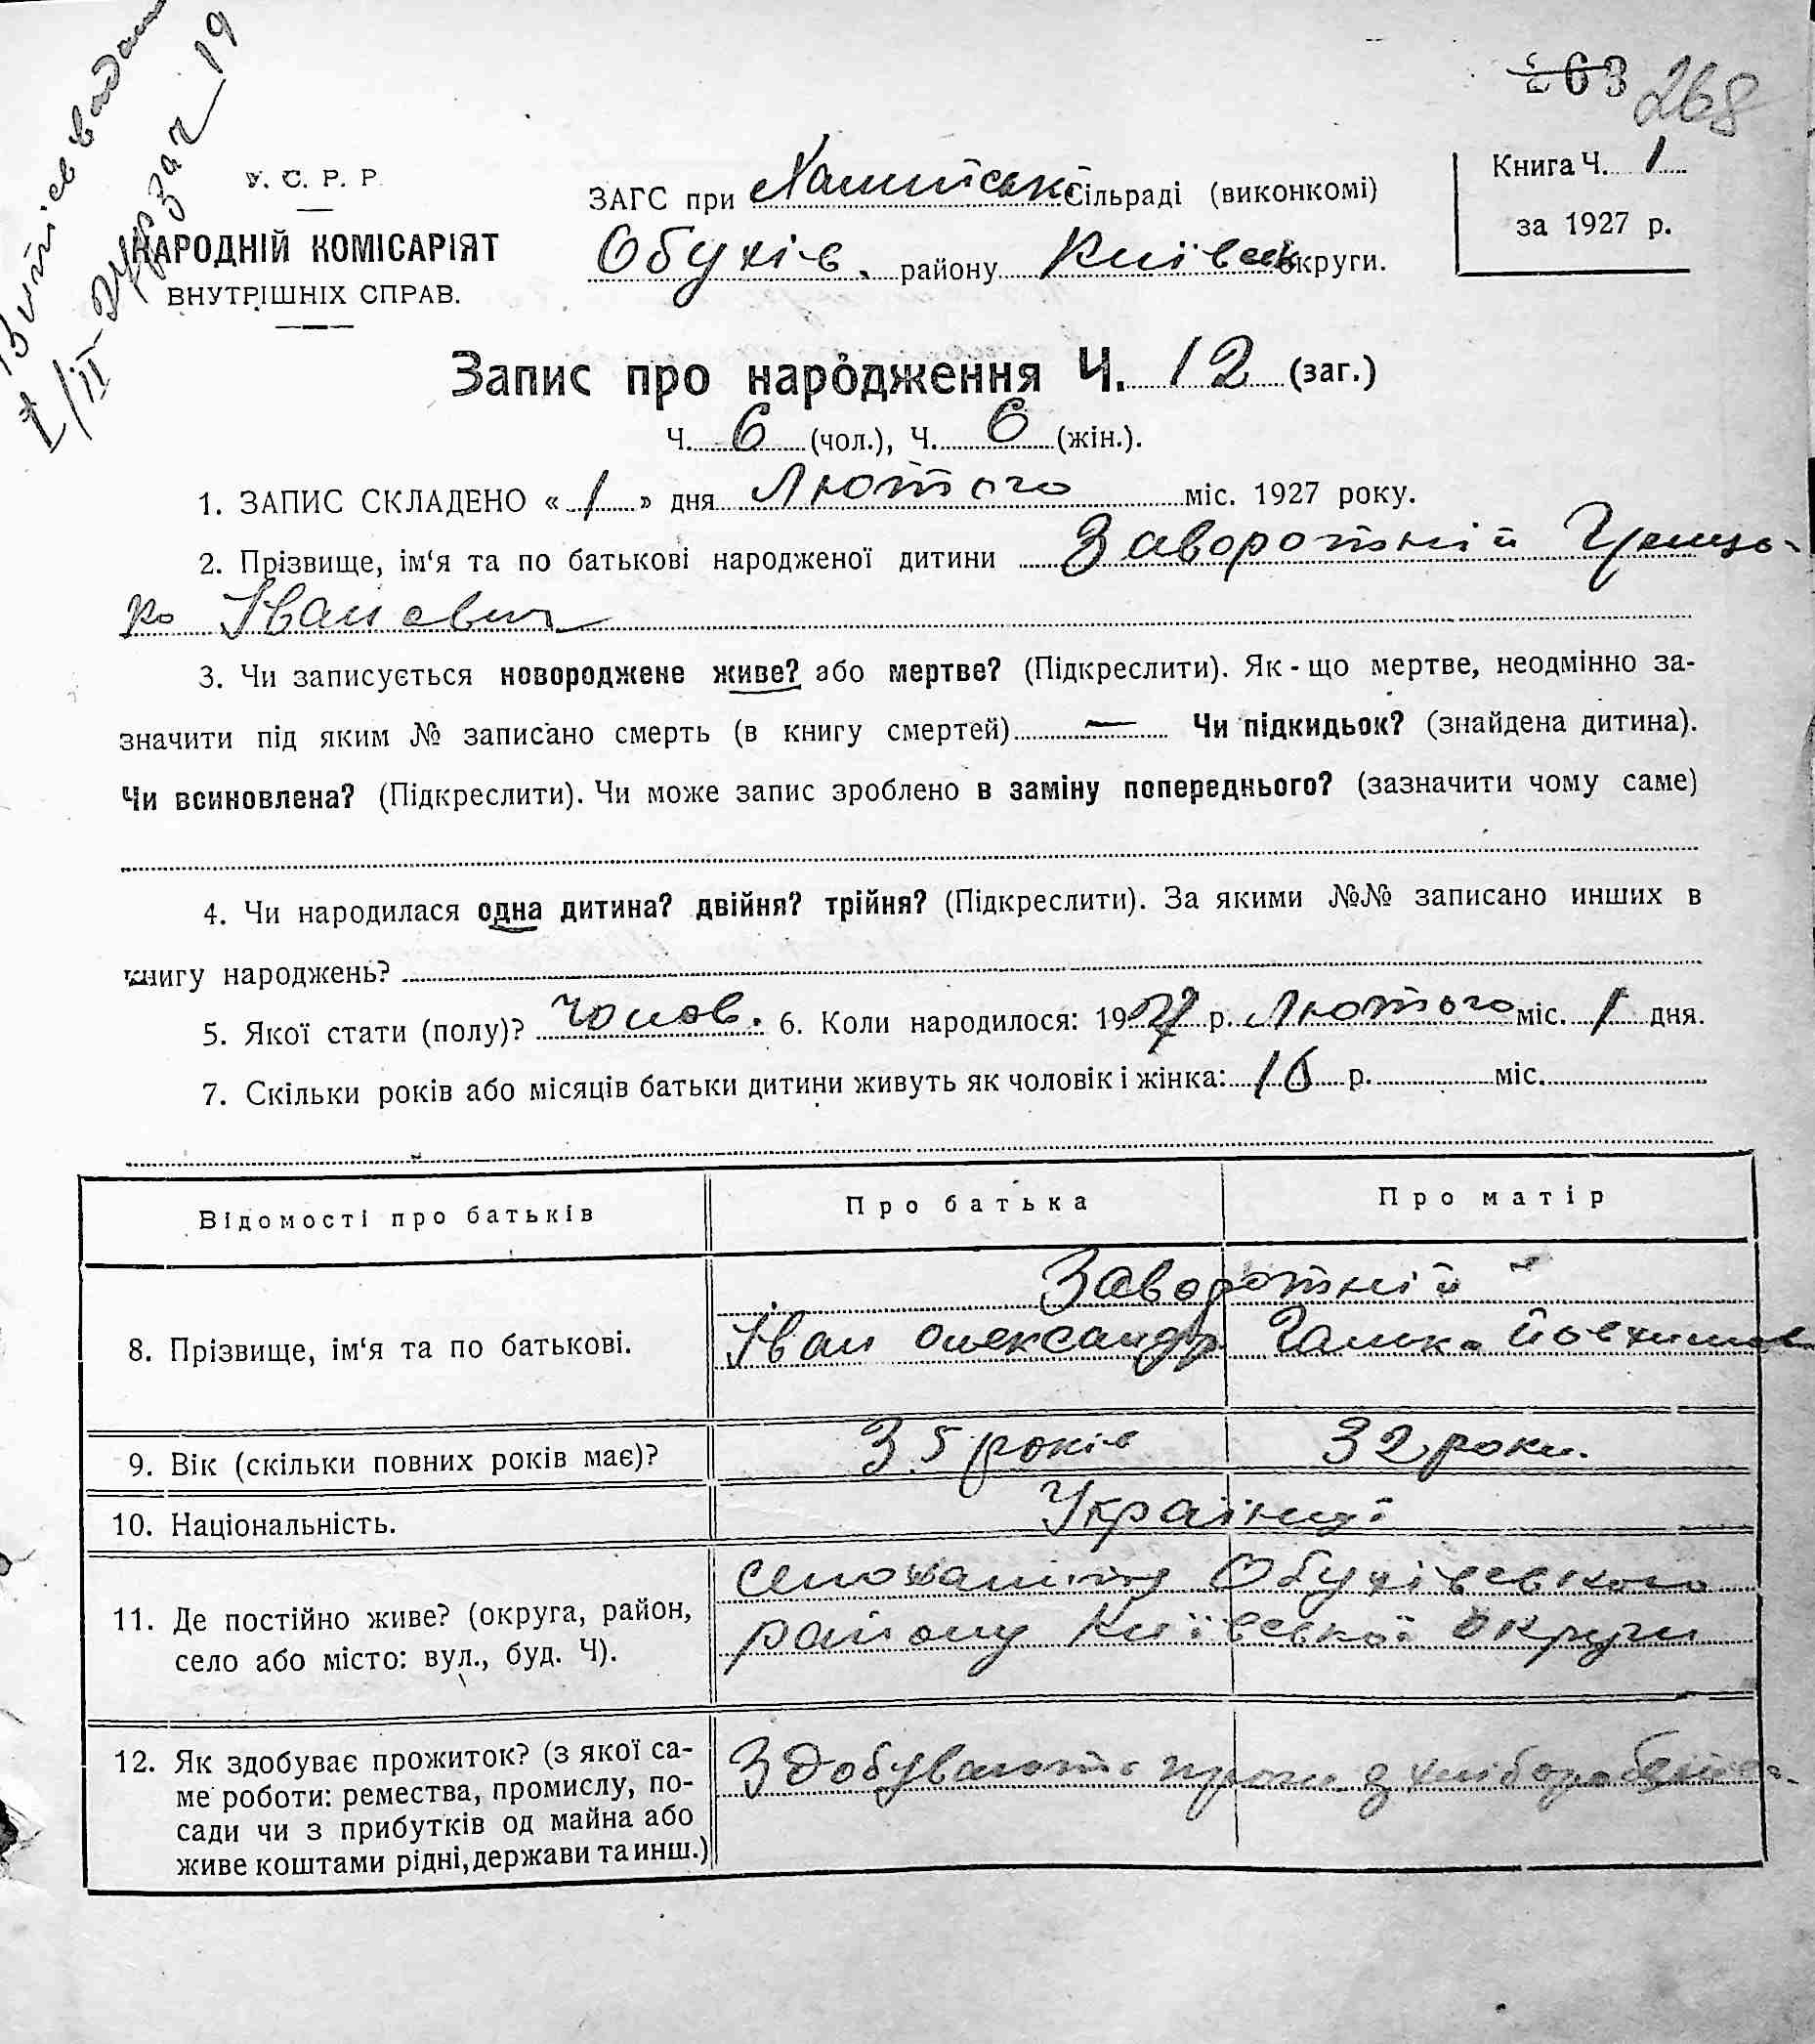 263 268
У. С. Р. Р.
НАРОДНІЙ КОМІСАРІЯТ
ВНУТРІШНІХ СПРАВ.
ЗАГС при Сільраді (виконкомі)
Обухів. району Київськ округи.
Книга Ч. 1
за 1927 р.
Запис про народження Ч. 12 (заг.)
Ч. 6 (чол.), Ч. 6 (жін.).
1. ЗАПИС СКЛАДЕНО « 1 » дня Лютого міс. 1927 року.
2. Прізвище, ім‘я та по батькові народженої дитини Заворотній Гриць-
ко Іванович
3. Чи записується новороджене живе? або мертве? (Підкреслити). Як-що мертве, неодмінно за-
значити під яким № записано смерть (в книгу смертей) — Чи підкидьок? (знайдена дитина).
Чи всиновлена? (Підкреслити). Чи може запис зроблено в заміну попереднього? (зазначити чому саме)
4. Чи народилася одна дитина? двійня? трійня? (Підкреслити). За якими №№ записано инших в
книгу народжень?
5. Якої стати (полу)? Чолов. 6. Коли народилося: 1927 р. Лютого міс. 1 дня.
7. Скільки років або місяців батьки дитини живуть як чоловік і жінка: 16 р. міс.
Відомості про батьків Про батька Про матір
Заворотній
8. Прізвище, ім‘я та по батькові. Іван Олександр Галька
9. Вік (скільки повних років має)? 35 років 32 роки.
10. Національність. Українці
Обухівського
11. Де постійно живе? (округа, район, району Київської округи
село або місто: вул., буд. Ч).
12. Як здобуває прожиток? (з якої са- Здобувають
ме роботи: ремества, промислу, по-
сади чи з прибутків од майна або
живе коштами рідні, держави та инш.)